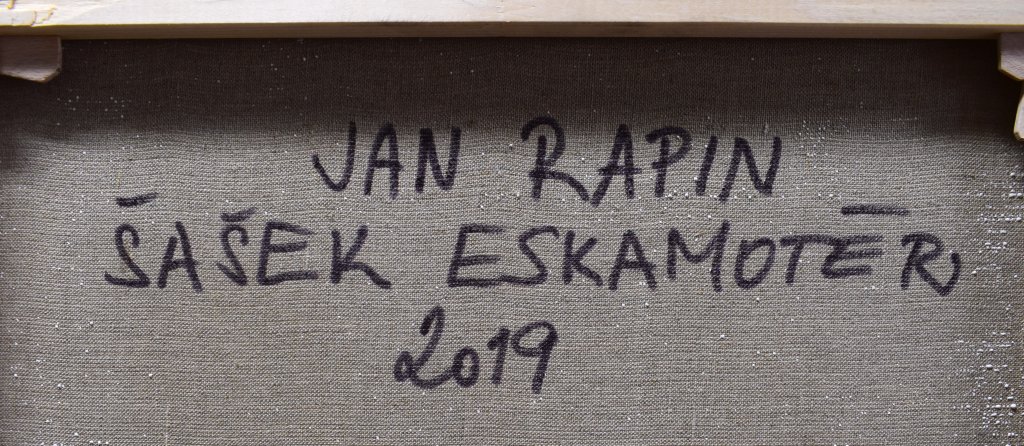 JAN RAPIN
ŠAŠEK ESKAMOTÉR,
2019